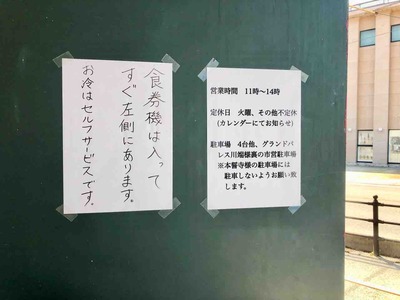 食券機は入って
すぐ左側にあります。
お冷はセルフサービスです。
営業時間　11時～14時
定休日　火曜、その他不定休
（カレンダーにてお知らせ）
駐車場　4台他、グランドパ
レス川端様裏の市営駐車場
※本誓寺様の駐車場には
駐車しないようお願い致
します。